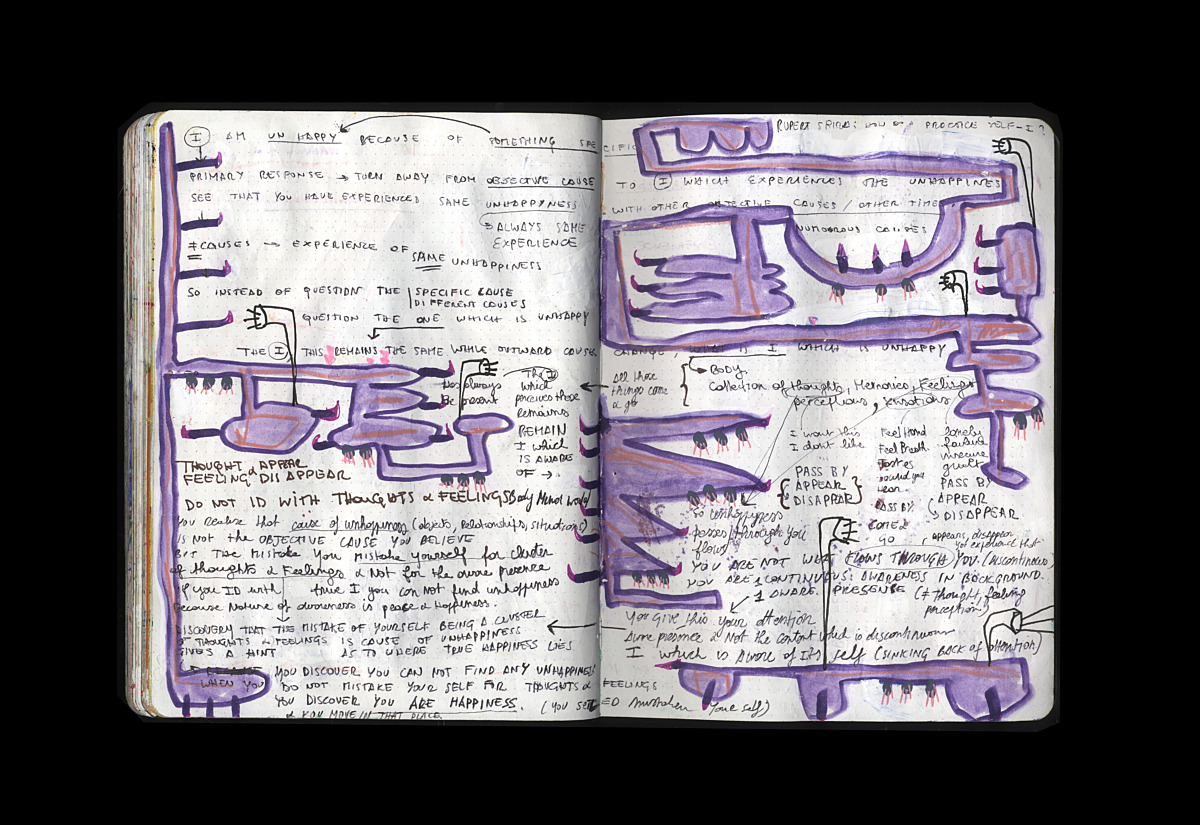 RUPERT SPIRA: HOW DO I PRACTICE SELF-I?
I AM UNHAPPY BECAUSE OF SOMETHING SPECIFIC
PRIMARY RESPONSE → TURN AWAY FROM OBJECTIVE CAUSE TO I WHICH EXPERIENCES THE UNHAPPINES
SEE THAT YOU HAVE EXPERIENCED SAME UNHAPPYNESS WITH OTHER OBJECTIVE CAUSES / OTHER TIME
= ALWAYS SAME
EXPERIENCE
NUMOROUS CAUSES
≠ CAUSES → EXPERIENCE OF
SAME UNHAPPINESS
SO INSTEAD OF QUESTION THE SPECIFIC CAUSE
DIFFERENT CAUSES
QUESTION THE ONE WHICH IS UNHAPPY
THE I THIS REMAINS THE SAME WHILE OUTWARD CAUSES CHANGE, WHAT IS I WHICH IS UNHAPPY
always
Be present
The I
which
perceives those
remains
REMAIN
I which
IS AWARE
OF →
All those
things come
& go
BODY
Collection of thoughts, Memories, Feelings
perceptions, sensations
I want this
I don't like
PASS BY
APPEAR
DISAPPEAR
Feel Hand
Feel Breath
Tastes
Hear
PASS BY
COME &
GO
lonely
failure
insecure
guilt
PASS BY
APPEAR
DISAPPEAR
appears, disappear
not experience that
So unhappyness
passes through you
flows
THOUGHT & APPEAR
FEELING DISAPPEAR
DO NOT ID WITH THOUGHTS & FEELINGS Body Mind World
You realize that cause of unhappiness (objects, relationships, situations)
IS NOT THE OBJECTIVE CAUSE YOU BELIEVE
BUT THE MISTAKE YOU Mistake yourself for cluster
of thoughts & Feelings & Not for the aware presence
If you ID with true I you can not find unhappiness
Because Nature of awareness is peace & Happiness.
YOU ARE NOT WHAT FLOWS THROUGH YOU (Discontinuous)
YOU ARE CONTINUOUS: AWARENESS IN BACKGROUND.
1 AWARE PRESENCE (≠ thought, feeling
perception)
DISCOVERY THAT THE MISTAKE OF YOURSELF BEING A CLUSTER
OF THOUGHTS & FEELINGS IS CAUSE OF UNHAPPINESS
GIVES A HINT AS TO WHERE TRUE HAPPINESS LIES
You give this your attention
Aware presence & Not the content which is discontinuous
I which is aware of Its self (SINKING BACK of attention)
YOU DISCOVER YOU CAN NOT FIND ANY UNHAPPINESS
WHEN YOU DO NOT MISTAKE YOUR SELF FOR THOUGHTS & FEELINGS
YOU DISCOVER YOU ARE HAPPINESS.
& YOU MOVE IN THAT PLACE.
your self)